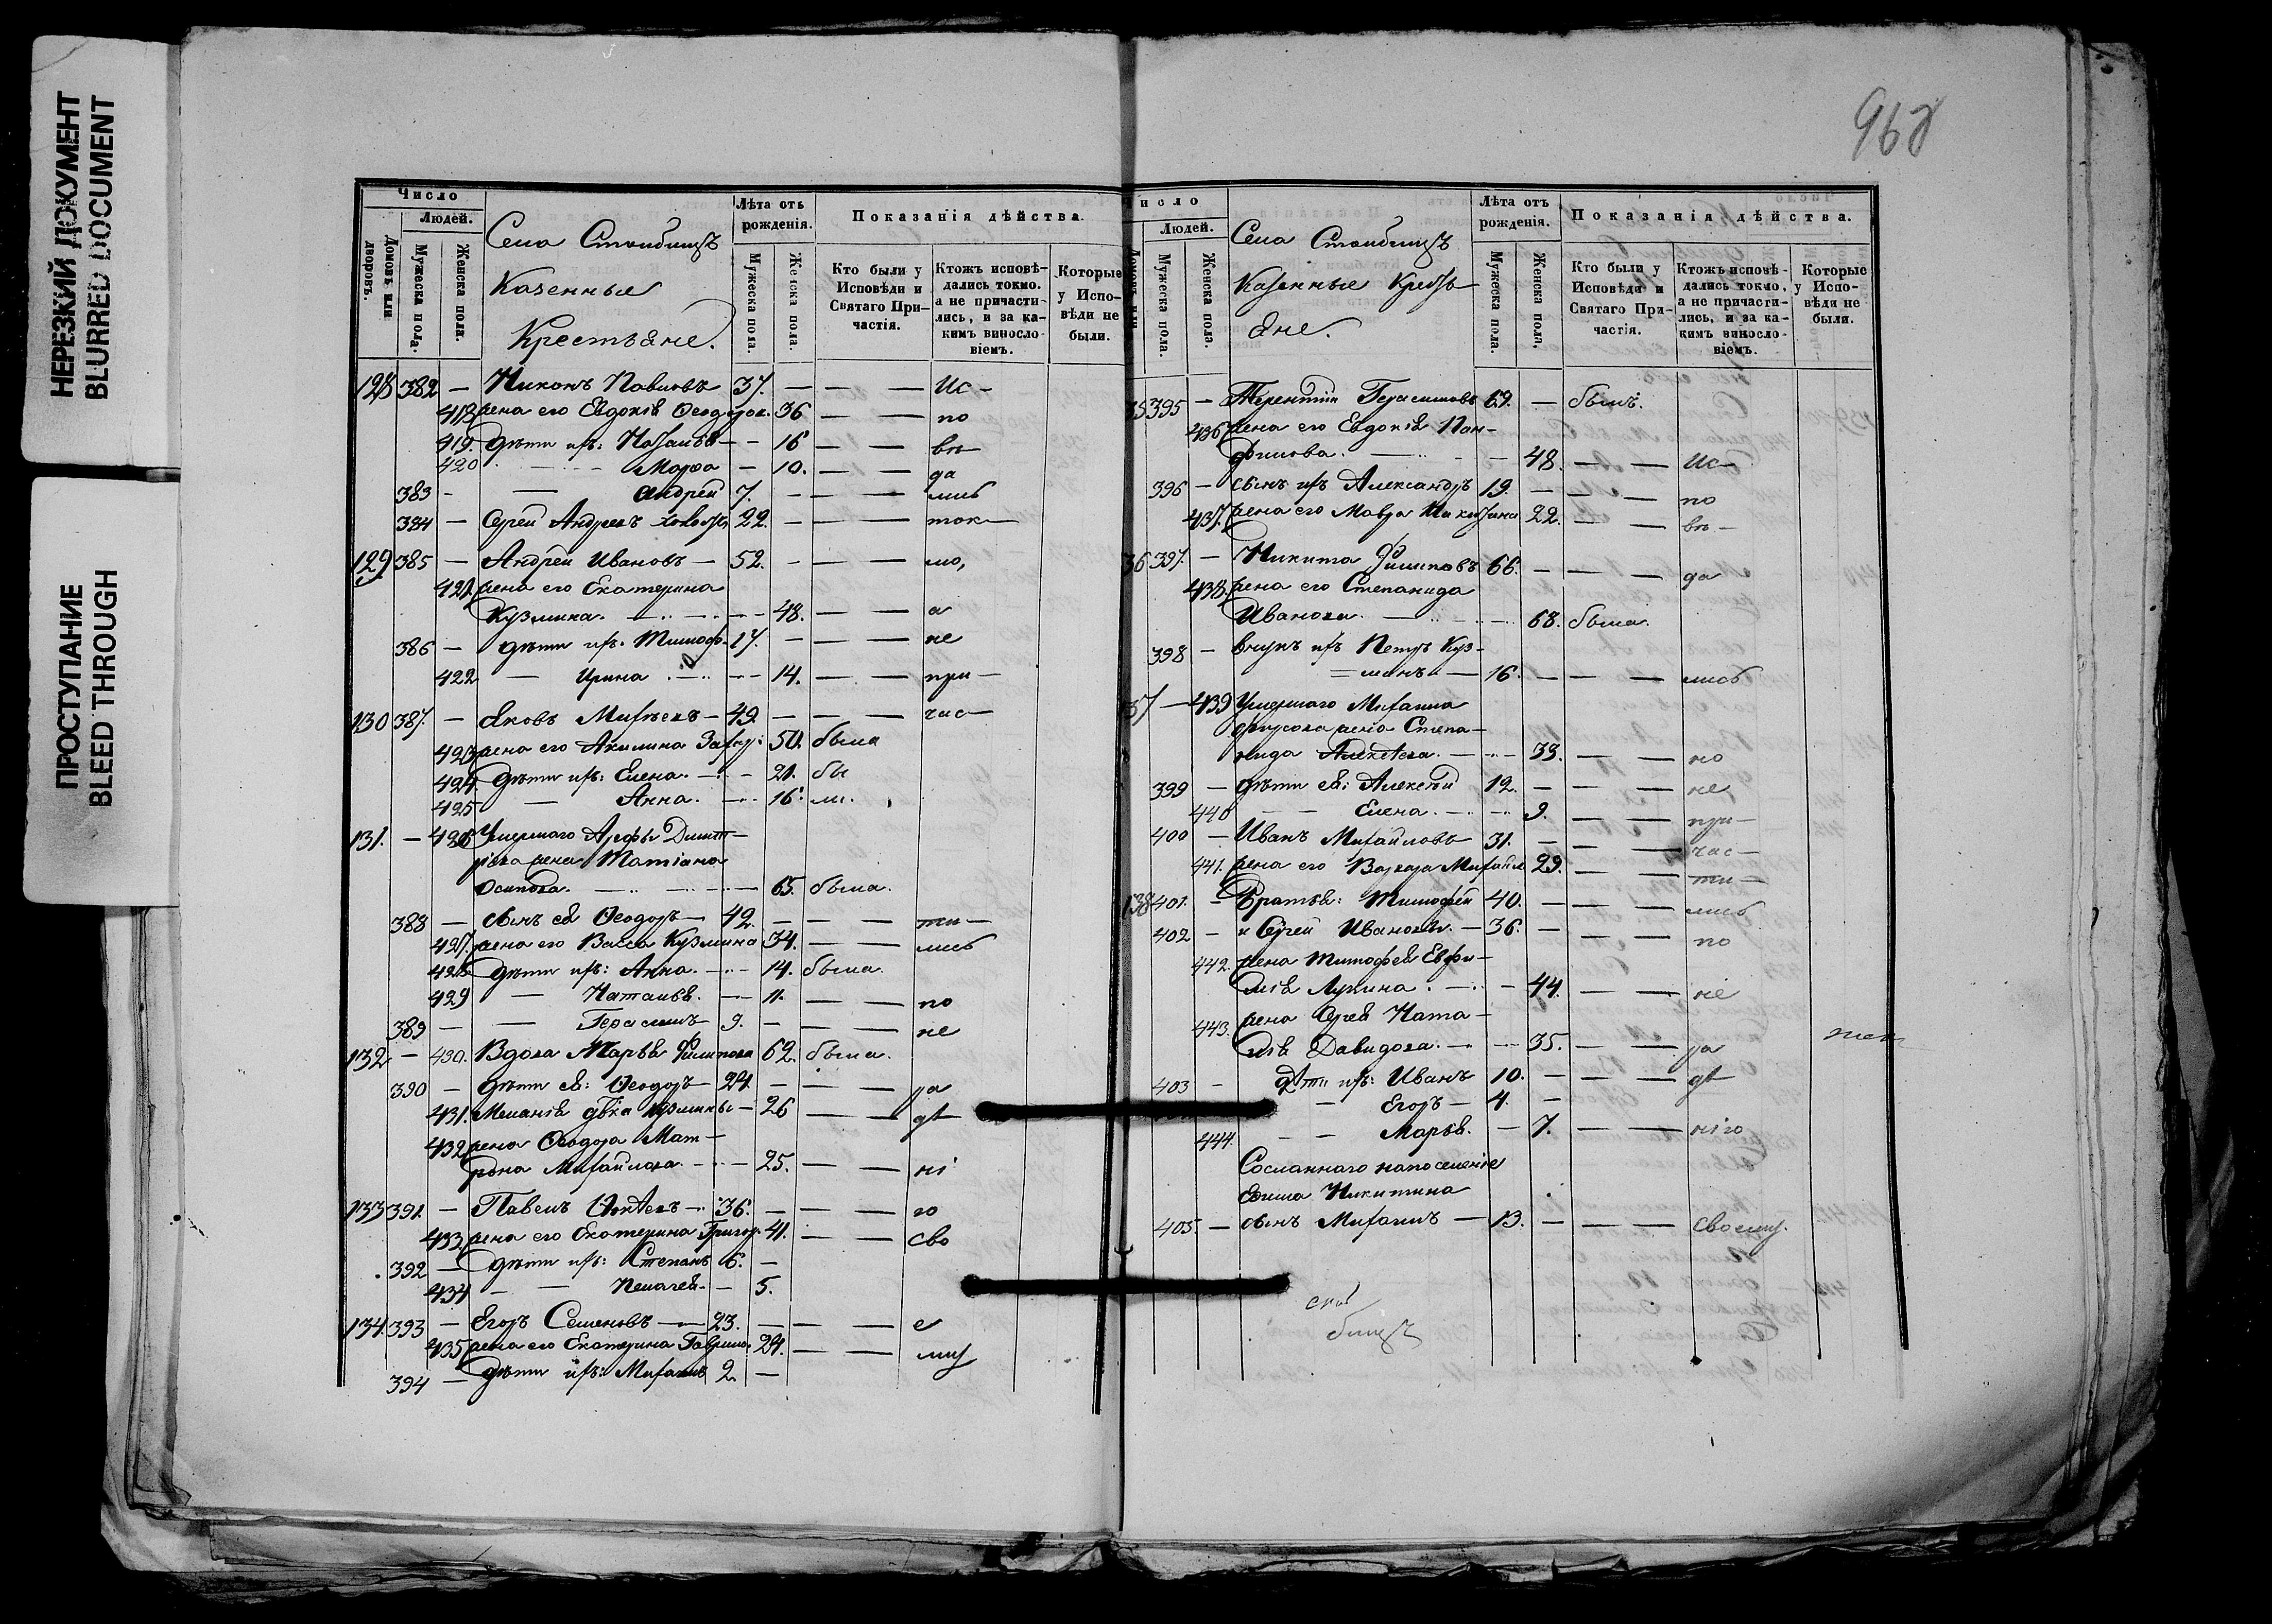 НЕРЕЗКИЙ ДОКУМЕНТ
BLURRED DOCUMENT
ПРОСТУПАНИЕ
BLEED THROUGH
Число
Людей.
Домовъ или дворовъ.
Мужеска пола.
Женска пола.
Села Столбищъ
Казенные
Крестьяне.
Лѣта отъ рожденія.
Мужеска пола.
Женска пола.
Показанія дѣйства.
Кто были у Исповѣди и Святаго Причастія.
Ктожъ исповѣдались токмо, а не причастились, и за какимъ винословіемъ.
Которые у Исповѣди не были.
128 382 — Никонъ Павловъ 37. — — — Ис-
418 жена его Евдокія Ѳеодоров. 36 — — по
419. дѣти ихъ: Наталья — - 16 — — вѣ
420 — Марѳа — 10. — — да
383 - — Андрей 7. - — — лись
384 — Сергей Андреевъ 22. - — — ток—
129 385 — Андрей Ивановъ — 52. - — — мо,
421. жена его Екатерина
Кузмина. — 48. — — а
386 — дѣти ихъ. Тимоф. 17. - — — не
422 — Ирина — 14. — — при—
130 387. — Яковъ Михѣевъ — 49. — — — час—
423 жена его Акилина Захар: 50. была
424 дѣти ихъ: Елена. — 21. бы
425 — Анна. — 16. ли.
131. — 426 Умершаго Дмит-
ріева жена Татіана
Осипова. — 65. была.
388 — сынъ ея Ѳеодоръ — 42. — — — ти—
427. жена его Васса Кузмина 34. — — лись
428 дѣти ихъ: Анна. — 14. была.
429 — Наталья. — 11. — — по
389 — — Герасимъ 9. — — — не
132 — 430. Вдова Марья Филипова 62. была.
390 — дѣти ея: Ѳеодоръ — 24. — — — ра
431. Меланія дѣвка — 26 — — дѣ
432 жена Ѳеодора Мат-
рона Михайлова. — 25. — — ні
133 391. — Павелъ 36. — — — го
433 жена его Екатерина Григор. 41. — — сво
392 — дѣти ихъ: Степанъ 6. —
434 - — Пелагея — 5.
134. 393 — Егоръ Семеновъ — 23. — — — е
435 жена его Екатерина Гаврило. 24. — — му
394 — дѣти ихъ: Михаилъ 2. —
968
Число
Людей.
Домовъ или
Мужеска пола.
Женска пола.
Села Столбищъ
Казенные Кресть
яне.
Лѣта отъ рожденія.
Мужеска пола.
Женска пола.
Показанія дѣйства.
Кто были у Исповѣди и Святаго Причастія.
Ктожъ исповѣдались токмо, а не причастились, и за какимъ винословіемъ.
Которые у Исповѣди не были.
35 395 — Терентій Герасимовъ 69. — былъ.
436 жена его Евдокія Пан-
филова. — 48. — — Ис—
396 — сынъ ихъ Александръ 19. — — — по
437. жена его Мавра 22. — — вѣ—
36 397. — Никита Филиповъ 66. — — — да
438. жена его Степанида
Иванова. — 68. была.
398 — внукъ ихъ Петръ Куз-
= минъ — 16. — — — лись
37 — 439 Умершаго Михаила
жена Степа-
нида Алексѣева. — 33. — — но
399 — дѣти ея: Алексѣй 12. — — — не
440 — — Елена. — 9. — — при—
400 — Иванъ Михайловъ 31. — — — час—
441. жена его Варвара Михайл 29. — — ти—
138 401. — Братья: Тимофей 40. — — — лись
402 - и Сергей Ивановы. — 36. — — — по
442. жена Тимофея Евфи-
мія Лукина. — 44. — — не
443. жена Сергея Ната-
лія Давидова. — 35. — — ра
403 - Дѣти ихъ: Иванъ 10. — — — дѣ
— Егоръ — 4. —
444. — — Марья. — 7. — — ніго
Сосланнаго на поселеніе
Никитина
405. — сынъ Михаилъ — 13. — — — своему.
бищъ